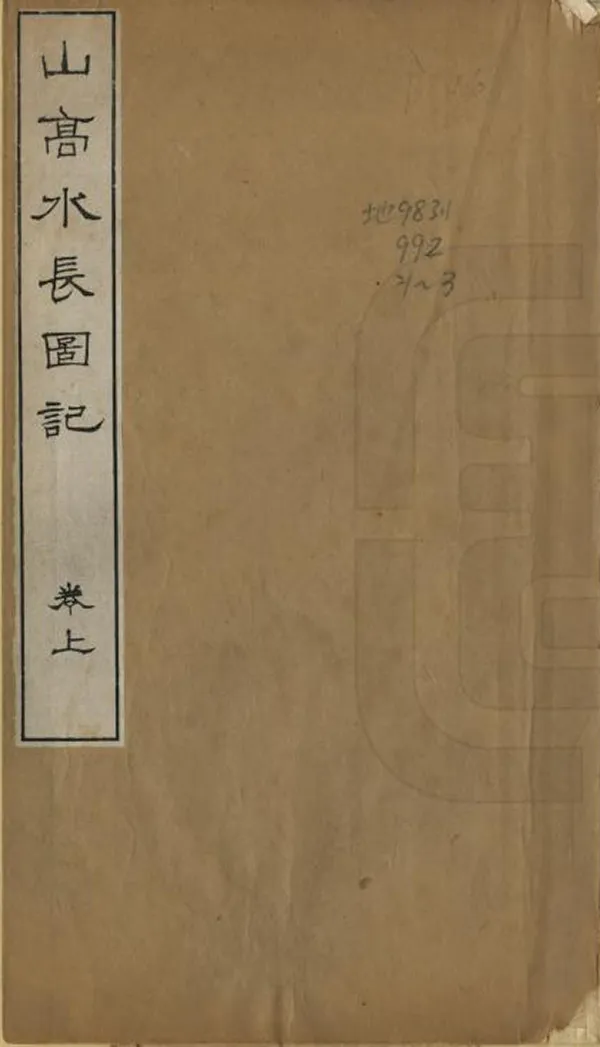 山髙水長圖記
卷上
地9831
992